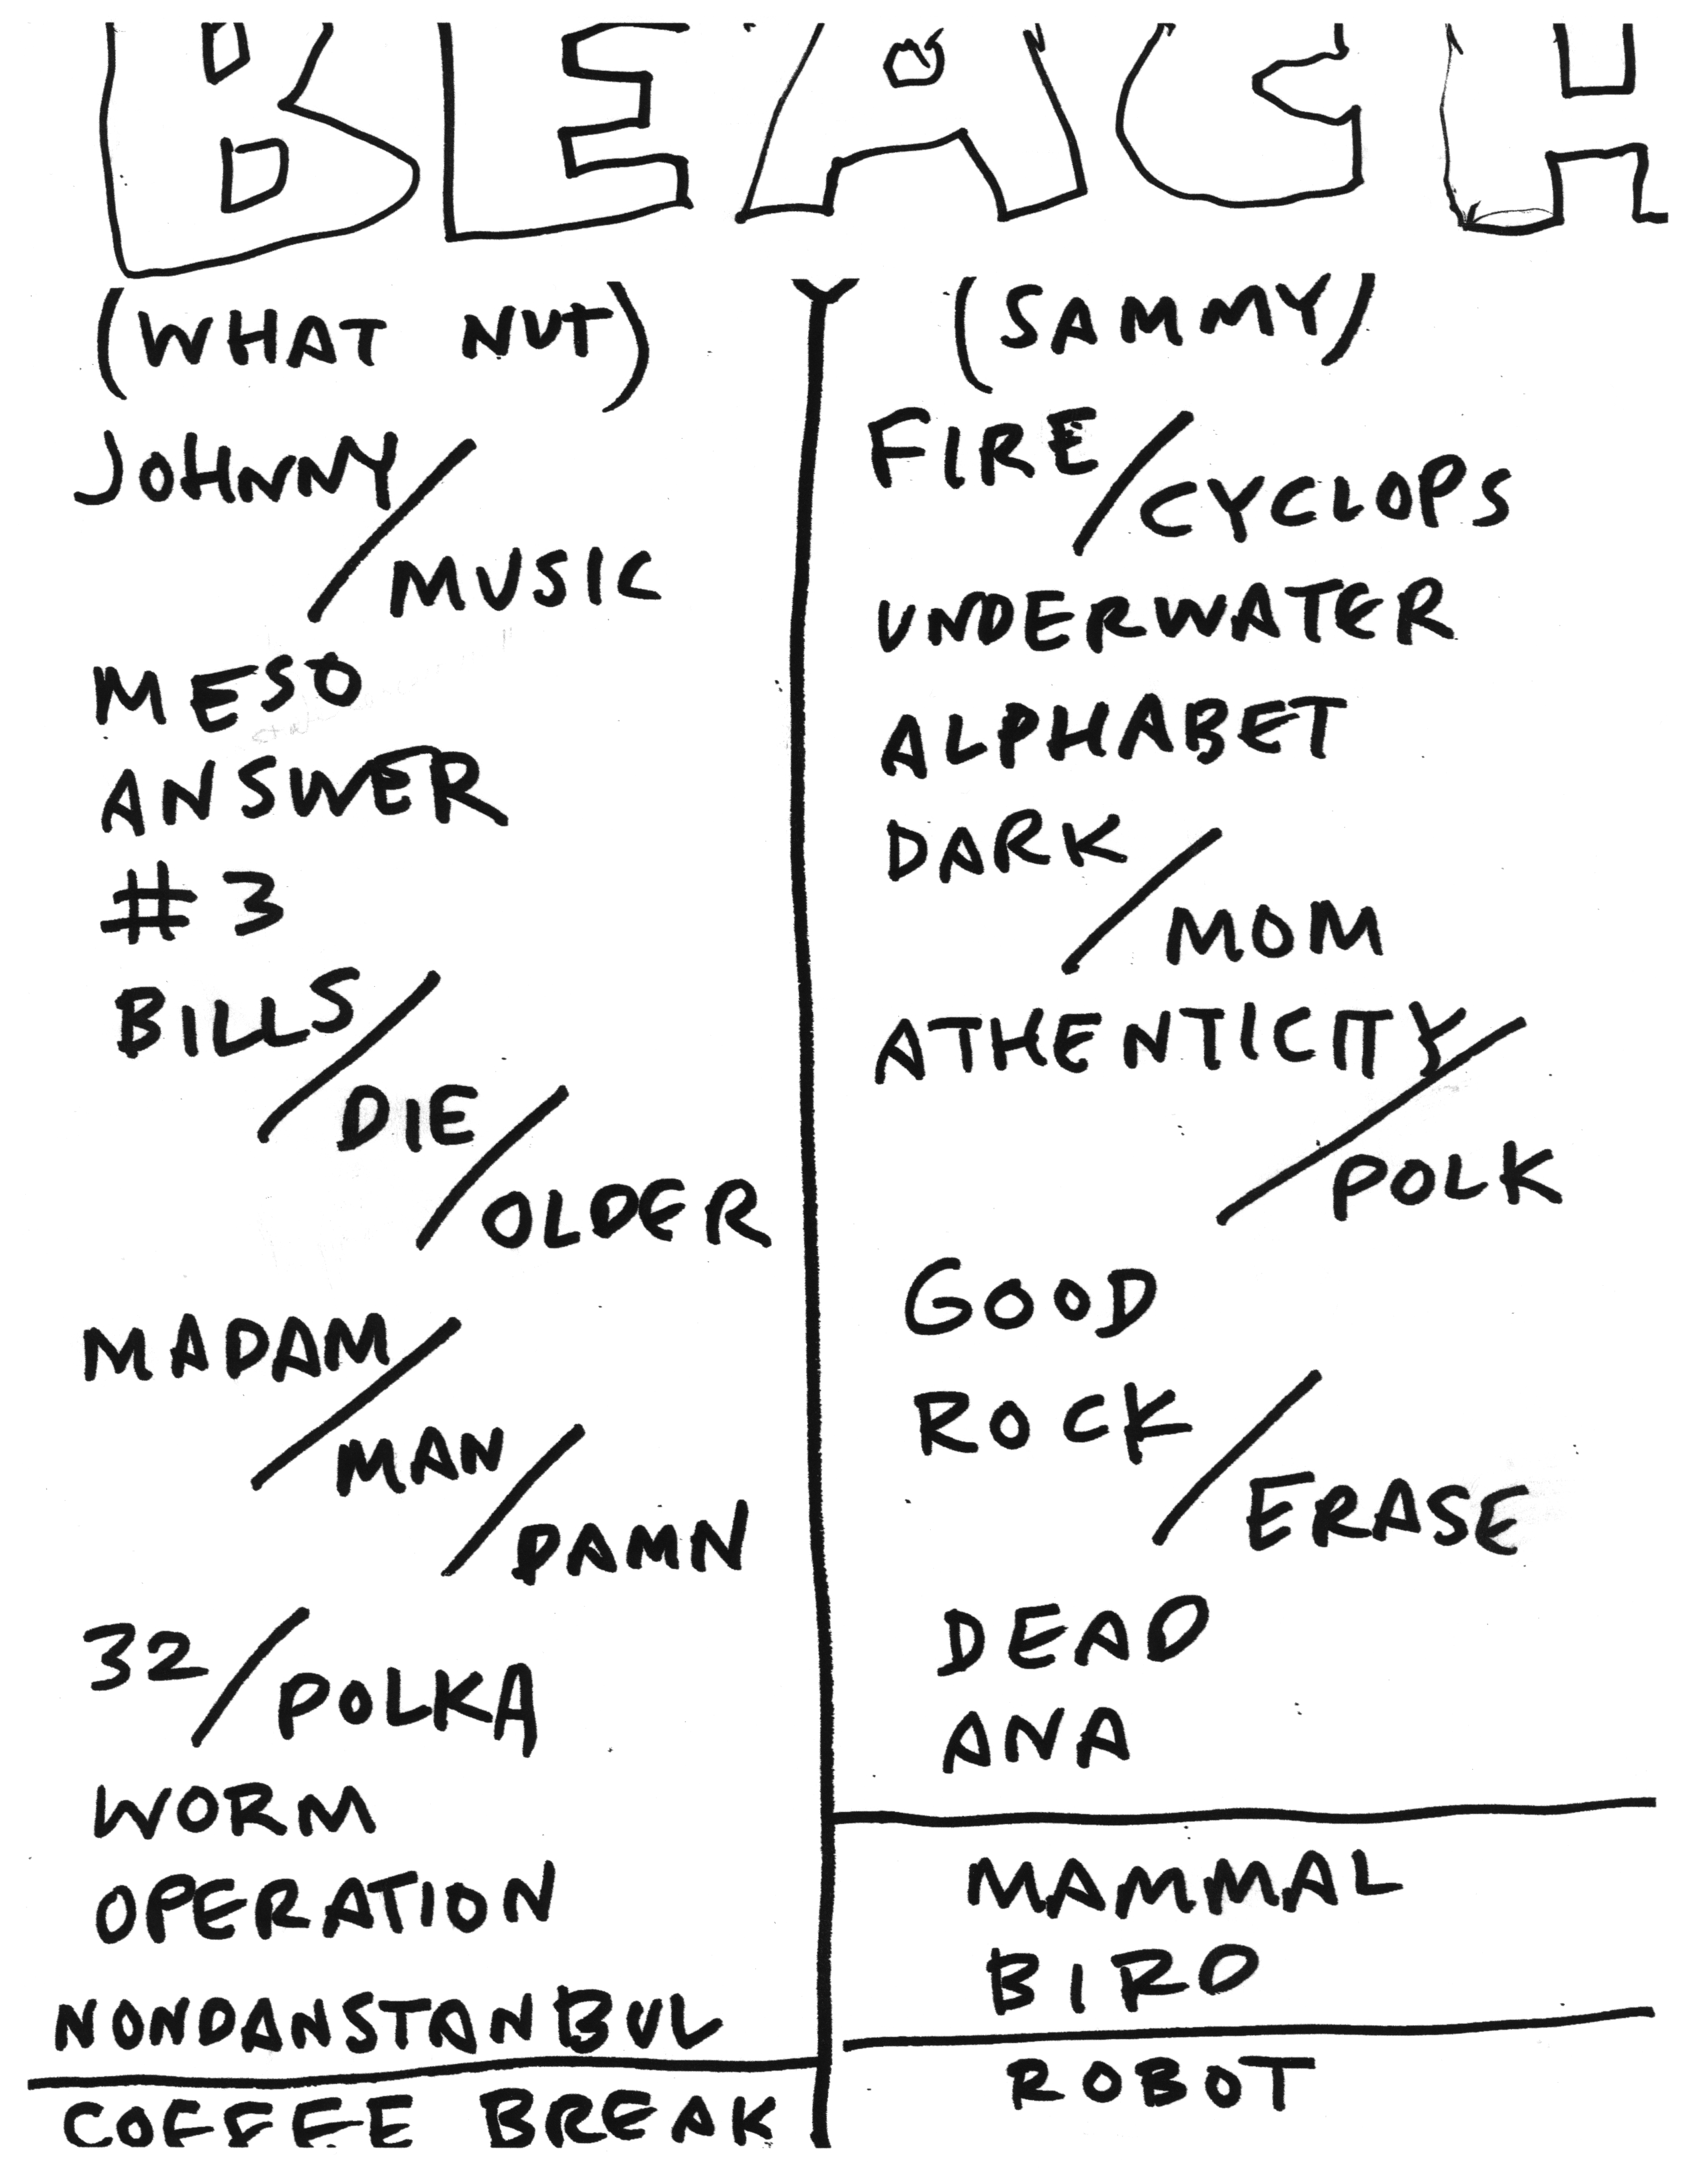 BEACH
(WHAT NUT)
JOHNNY/
MUSIC
MESO
ANSWER
#3
BILLS/
DIE/
OLDER
MADAM/
MAN/
DAMN
32/POLKA
WORM
OPERATION
NONDANSTANBUL
COFFEE BREAK
(SAMMY)
FIRE/
CYCLOPS
UNDERWATER
ALPHABET
DARK/
MOM
ATHENTICITY/
POLK
GOOD
ROCK/
ERASE
DEAD
ANA
MAMMAL
BIRD
ROBOT